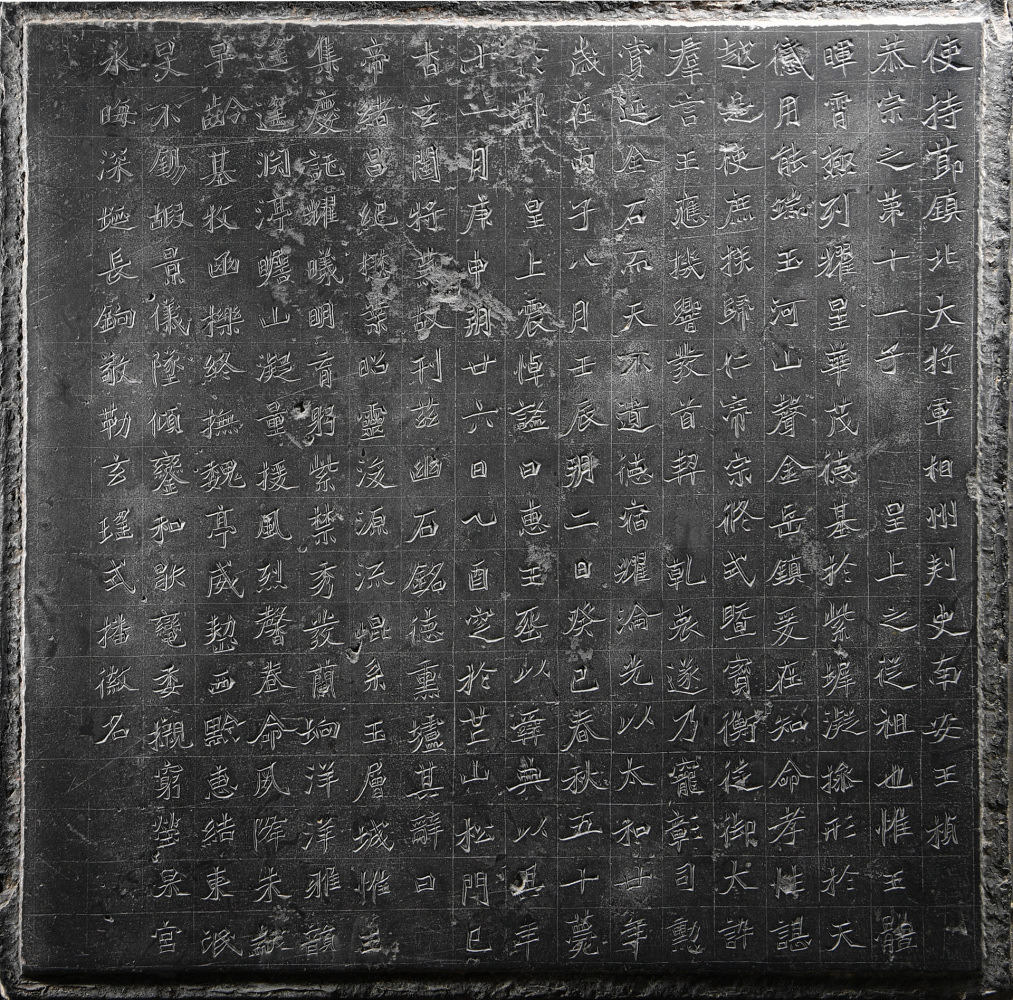 使持節鎮北大將軍相州刺史南安王楨
恭宗之第十一子　皇上之從祖也惟王體
暉霄極列耀星華茂德基於紫墀凝操形於天
感用能端玉河山聲金岳鎮爰在知命孝性諶
越是使庶族歸仁帝宗攸式暨寶衡徙御大訊
羣言王應機響發首契　乾衷遂乃寵彰司勳
賞延金石而天不遺德宿耀淪光以太和廿年
歲在丙子八月壬辰朔二日癸巳春秋五十薨
於鄴　皇上震悼謚曰惠王葬以彝典以其年
十一月庚申朔廿六日乙酉窆於芒山松門已
杳玄闥將蕪故刊茲幽石銘德熏壚其辭曰
帝緒昌紀懋業昭靈浚源流崐系玉層城惟王
集慶託耀曦明育躬紫禁秀發蘭坰洋洋雅韻
遙遙淵渟瞻山凝量援風烈馨卷命夙降朱黻
早齡基牧函櫟終撫魏亭威懋西黔惠結東氓
旻不錫嘏景儀墜傾鑾和歇轡委櫬窮塋泉宮
永晦深埏長鐍敬勒玄瑤式播徽名